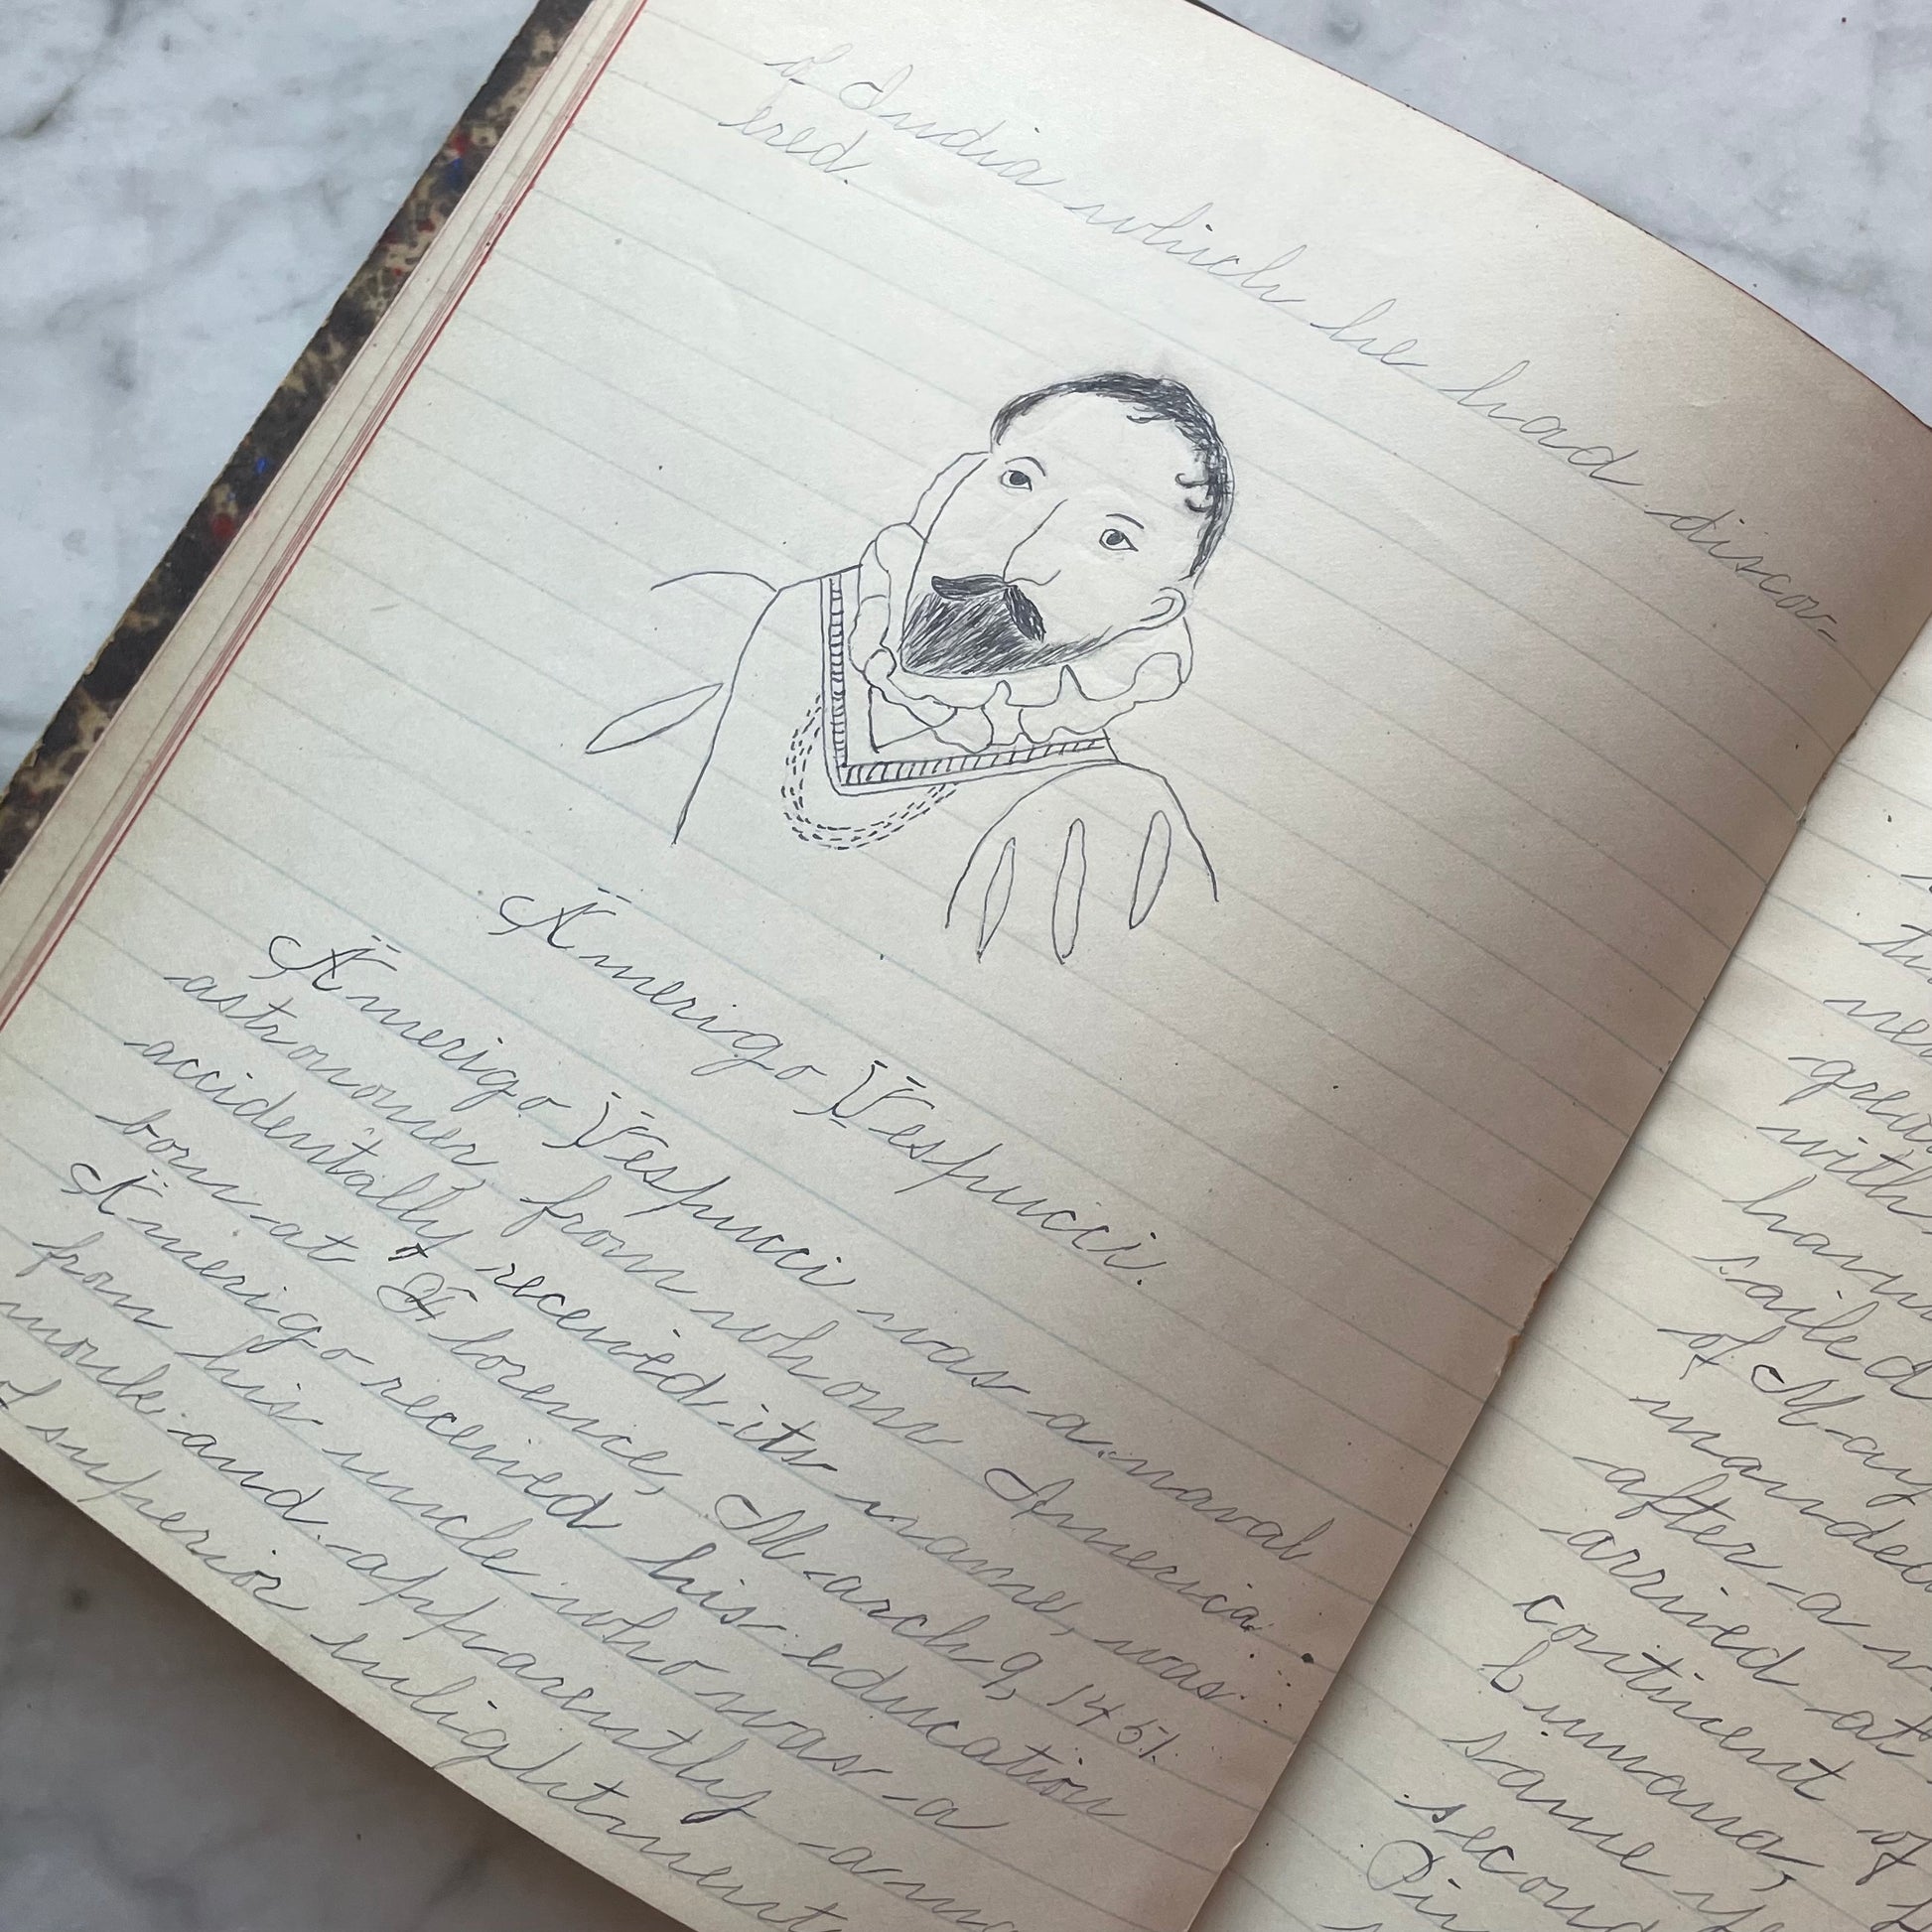 of India which he had discov-
ered.
Amerigo Vespucci.
Amerigo Vespucci was a naval
astronomer from whom America
accidentally received its name, was
born at Florence, March 9, 1451.
Amerigo received his education
from his uncle who was a
monk and apparently a man
of superior enlightment
great
with
sailed
of May
after a
arrived at
continent of
same
second